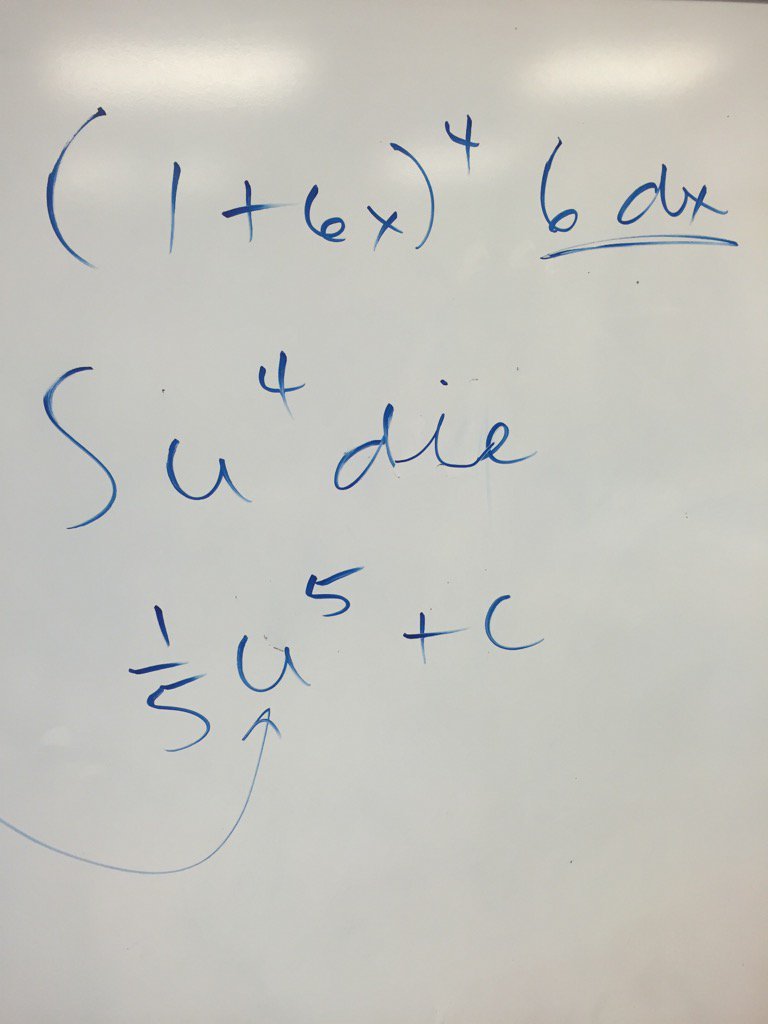 (1+6x)⁴ 6 dx
∫ u⁴ du
1/5 u⁵ + c